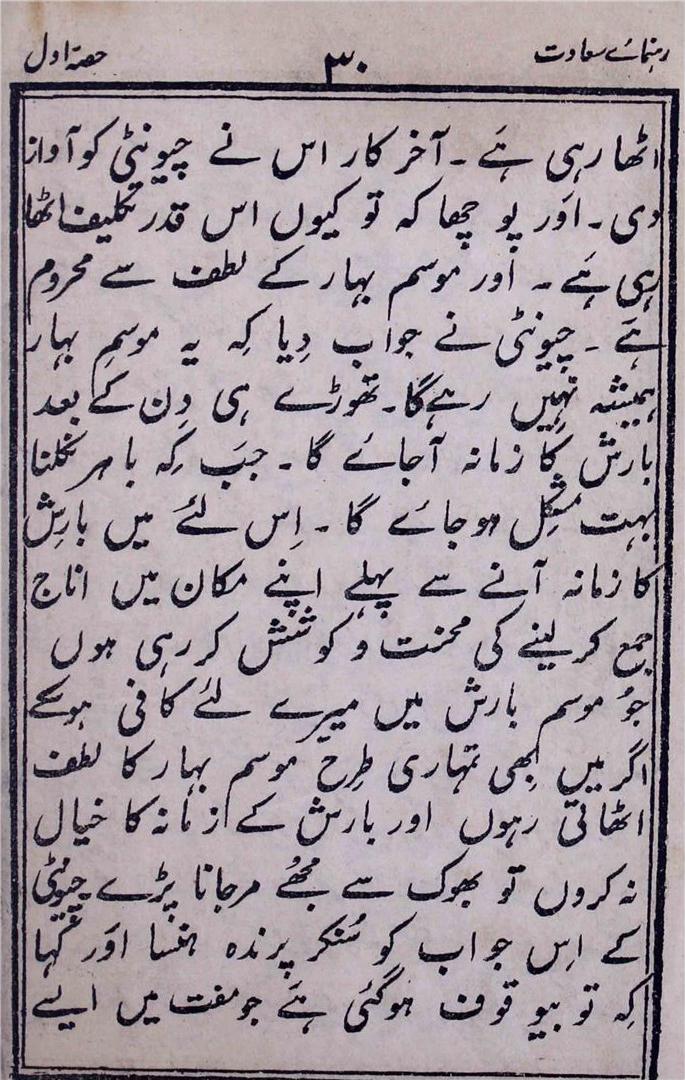 رہنمائے سعادت ۳۰ حصۂ اول
اٹھا رہی ہَے ۔ آخر کار اس نے چیونٹی کو آواز
دی ۔ اَور پوچھا کہ تو کیوں اس قدر تکلیف اٹھا
رہی ہَے ۔ اور موسم بہار کے لطف سے محروم
ہَے ۔ چیونٹی نے جواب دِیا کِہ یہ موسمِ بہار
ہمیشہ نہیں رہے گا ۔ تھوڑے ہی دِن کے بعد
بارش کا زمانہ آجائے گا ۔ جبَ کِہ باہر نکلنا
بہت مشکِل ہوجائے گا ۔ اِس لئے میں بارِش
کا زمانہ آنے سے پہلے اپنے مکان میں اناج
جمع کر لینے کی محنت و کوشش کر رہی ہوں
جوُ موسم بارش میں میرے لئے کافی ہوسکے
اگر میں بھی تمہاری طرح موسم بہار کا لطف
اٹھاتی رہوں اور بارش کے زمانہ کا خیال
نہ کروں تو بھوک سے مجھُے مرجانا پڑے چیونٹی
کے اِس جواب کو سُنکر پرندہ ہنسا اوَر کہا
کِہ تو بیوقوف ہوگئی ہَے جو مفت میں ایسے